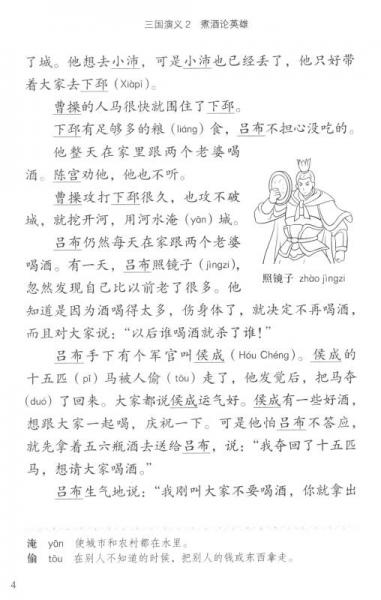 三国演义2 煮酒论英雄
了城。他想去小沛，可是小沛也已经丢了，他只好带
着大家去下邳（Xiàpī）。
曹操的人马很快就围住了下邳。
下邳有足够多的粮（liáng）食，吕布不担心没吃的。
他整天在家里跟两个老婆喝
酒。陈宫劝他，他也不听。
曹操攻打下邳很久，也攻不破
城，就挖开河，用河水淹（yān）城。
吕布仍然每天在家跟两个老婆
喝酒。有一天，吕布照镜子（jìngzi），
忽然发现自己比以前老了很多。他
照镜子 zhào jìngzi
知道是因为酒喝得太多，伤身体了，就决定不再喝酒，
而且对大家说：“以后谁喝酒就杀了谁！”
吕布手下有个军官叫侯成（Hóu Chéng）。侯成的
十五匹（pǐ）马被人偷（tōu）走了，他发觉后，把马夺
（duó）了回来。大家都说侯成运气好。侯成有一些好酒，
想跟大家一起喝，庆祝一下。可是他怕吕布不答应，
就先拿着五六瓶酒去送给吕布，说：“我夺回了十五匹
马，想请大家喝酒。”
吕布生气地说：“我刚叫大家不要喝酒，你就拿出
淹 yān 使城市和农村都在水里。
偷 tōu 在别人不知道的时候，把别人的钱或东西拿走。
4